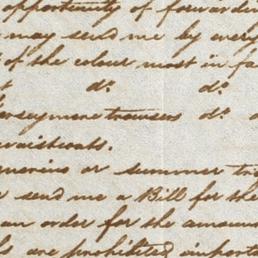 opportunity of forwarde
may send me by every
of the colour most in fa
do. do.
Kerseymere trousers do.
waistcoats.
or summer tro
send me a Bill for the
an order for the amoun
are prohibited importa